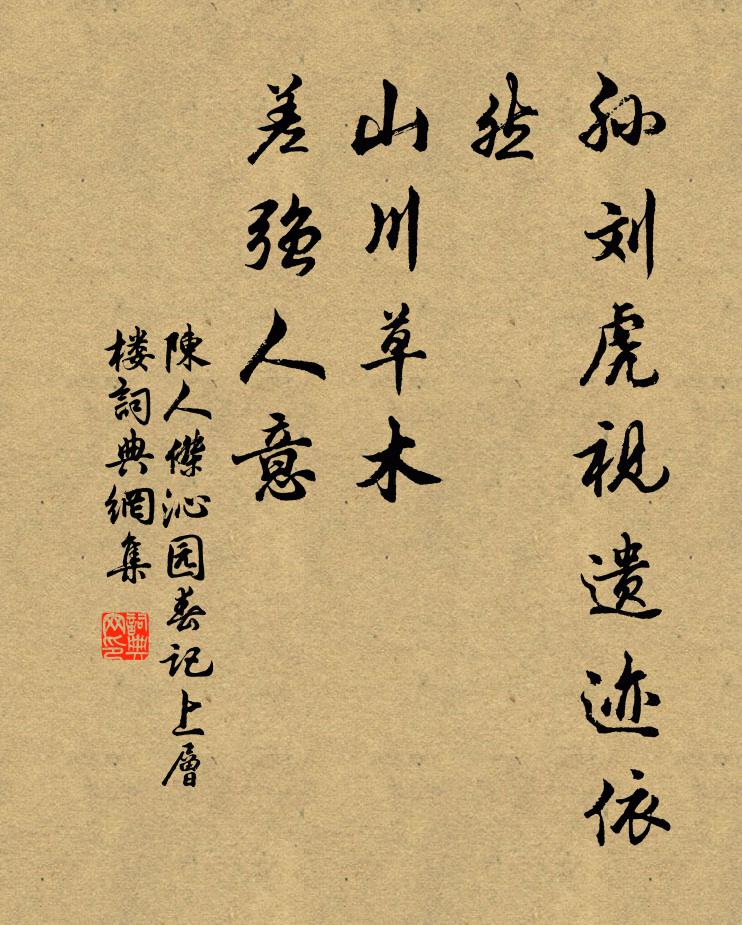 孙刘虎视遗迹依
然
山川草木
差强人意
陳人傑沁园春记上層
楼詞典網集
詞典
网印